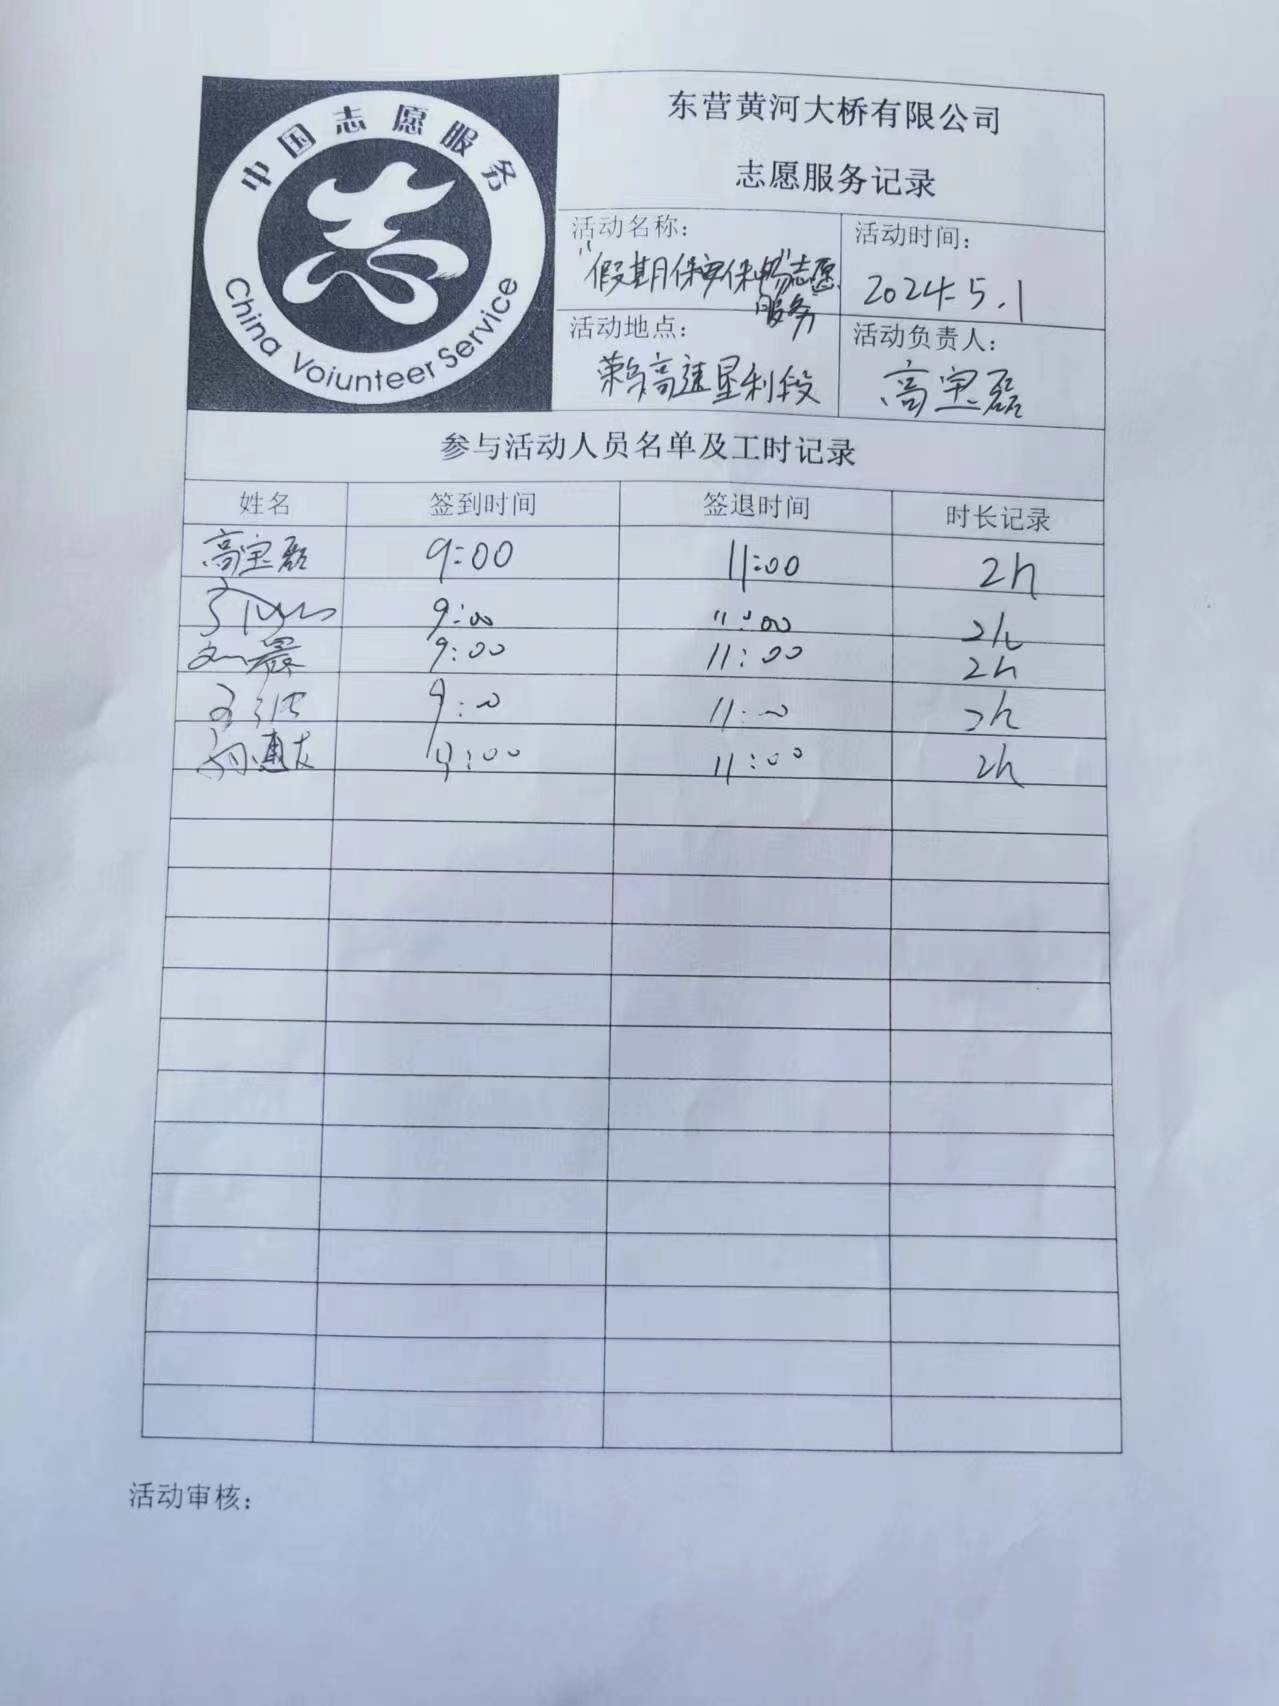 中国志愿服务
China Voiunteer Service
东营黄河大桥有限公司
志愿服务记录
活动名称:
"假期保安保畅"志愿
服务
活动时间:
2024.5.1
活动地点:
荣乌高速垦利段
活动负责人:
高宝磊
参与活动人员名单及工时记录
姓名 签到时间 签退时间 时长记录
高宝磊 9:00 11:00 2h
9:00 11:00 2h
刘晨 9:00 11:00 2h
9:00 11:00 2h
9:00 11:00 2h
活动审核: